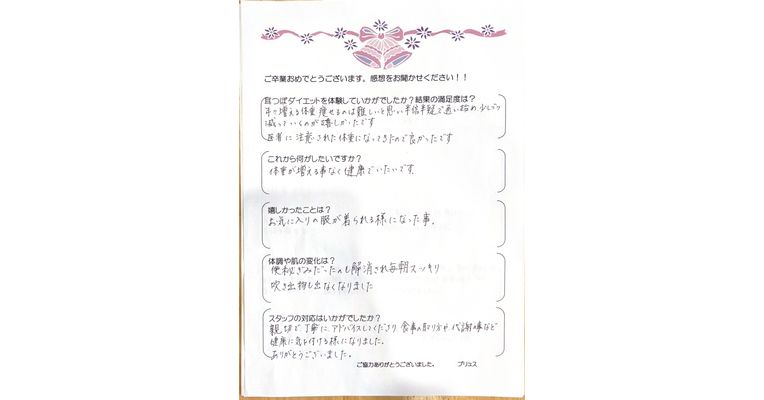 ご卒業おめでとうございます。感想をお聞かせください！！
耳つぼダイエットを体験していかがでしたか？結果の満足度は？
増える体重 痩せるのは難しいと思い半信半疑で通い始め 少しづつ
減っていくのが嬉しかったです
医者に注意された体重になってきたので良かったです
これから何がしたいですか？
体重が増える事なく健康でいたいです。
嬉しかったことは？
お気に入りの服が着られる様になった事。
体調や肌の変化は？
便秘ぎみだったのも解消され毎朝スッキリ
吹き出物も出なくなりました
スタッフの対応はいかがでしたか？
親切で丁寧に、アドバイスしてくださり 食事の取り方や、代謝の事など
健康に気を付ける様になりました。
ありがとうございました。
ご協力ありがとうございました。 プリュス